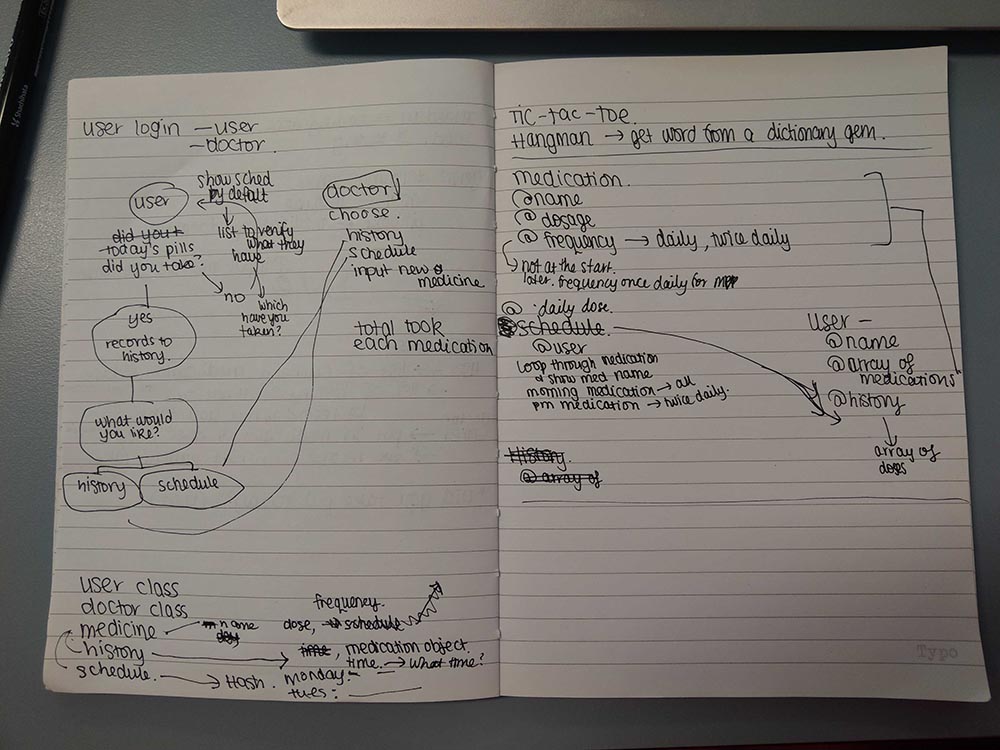 user login - user
- doctor.
user
show sched
by defalt
list to verify
what they
have
did you t
today's pills
did you take?
no
which
have you
taken?
yes
records to
history.
what would
you like?
history
schedule
doctor
choose.
history
schedule
input new
medicine
total took
each medication
user class
doctor class
medicine
history
schedule.
name
day
frequency.
dose, schedule
time, medication object.
time. → what time?
→ Hash. monday -
tues:
Tic-tac-toe.
Hangman → get word from a dictionary gem.
medication.
@name
@ dosage
@ frequency → daily, twice daily
not at the start.
later. frequency once daily for
@ daily dose.
schedule.
@user
loop through medication
& show med name
morning medication → all
pm medication → twice daily.
History
@ array of
user -
@name
@array of
medications
@history
array of
doses
Typo